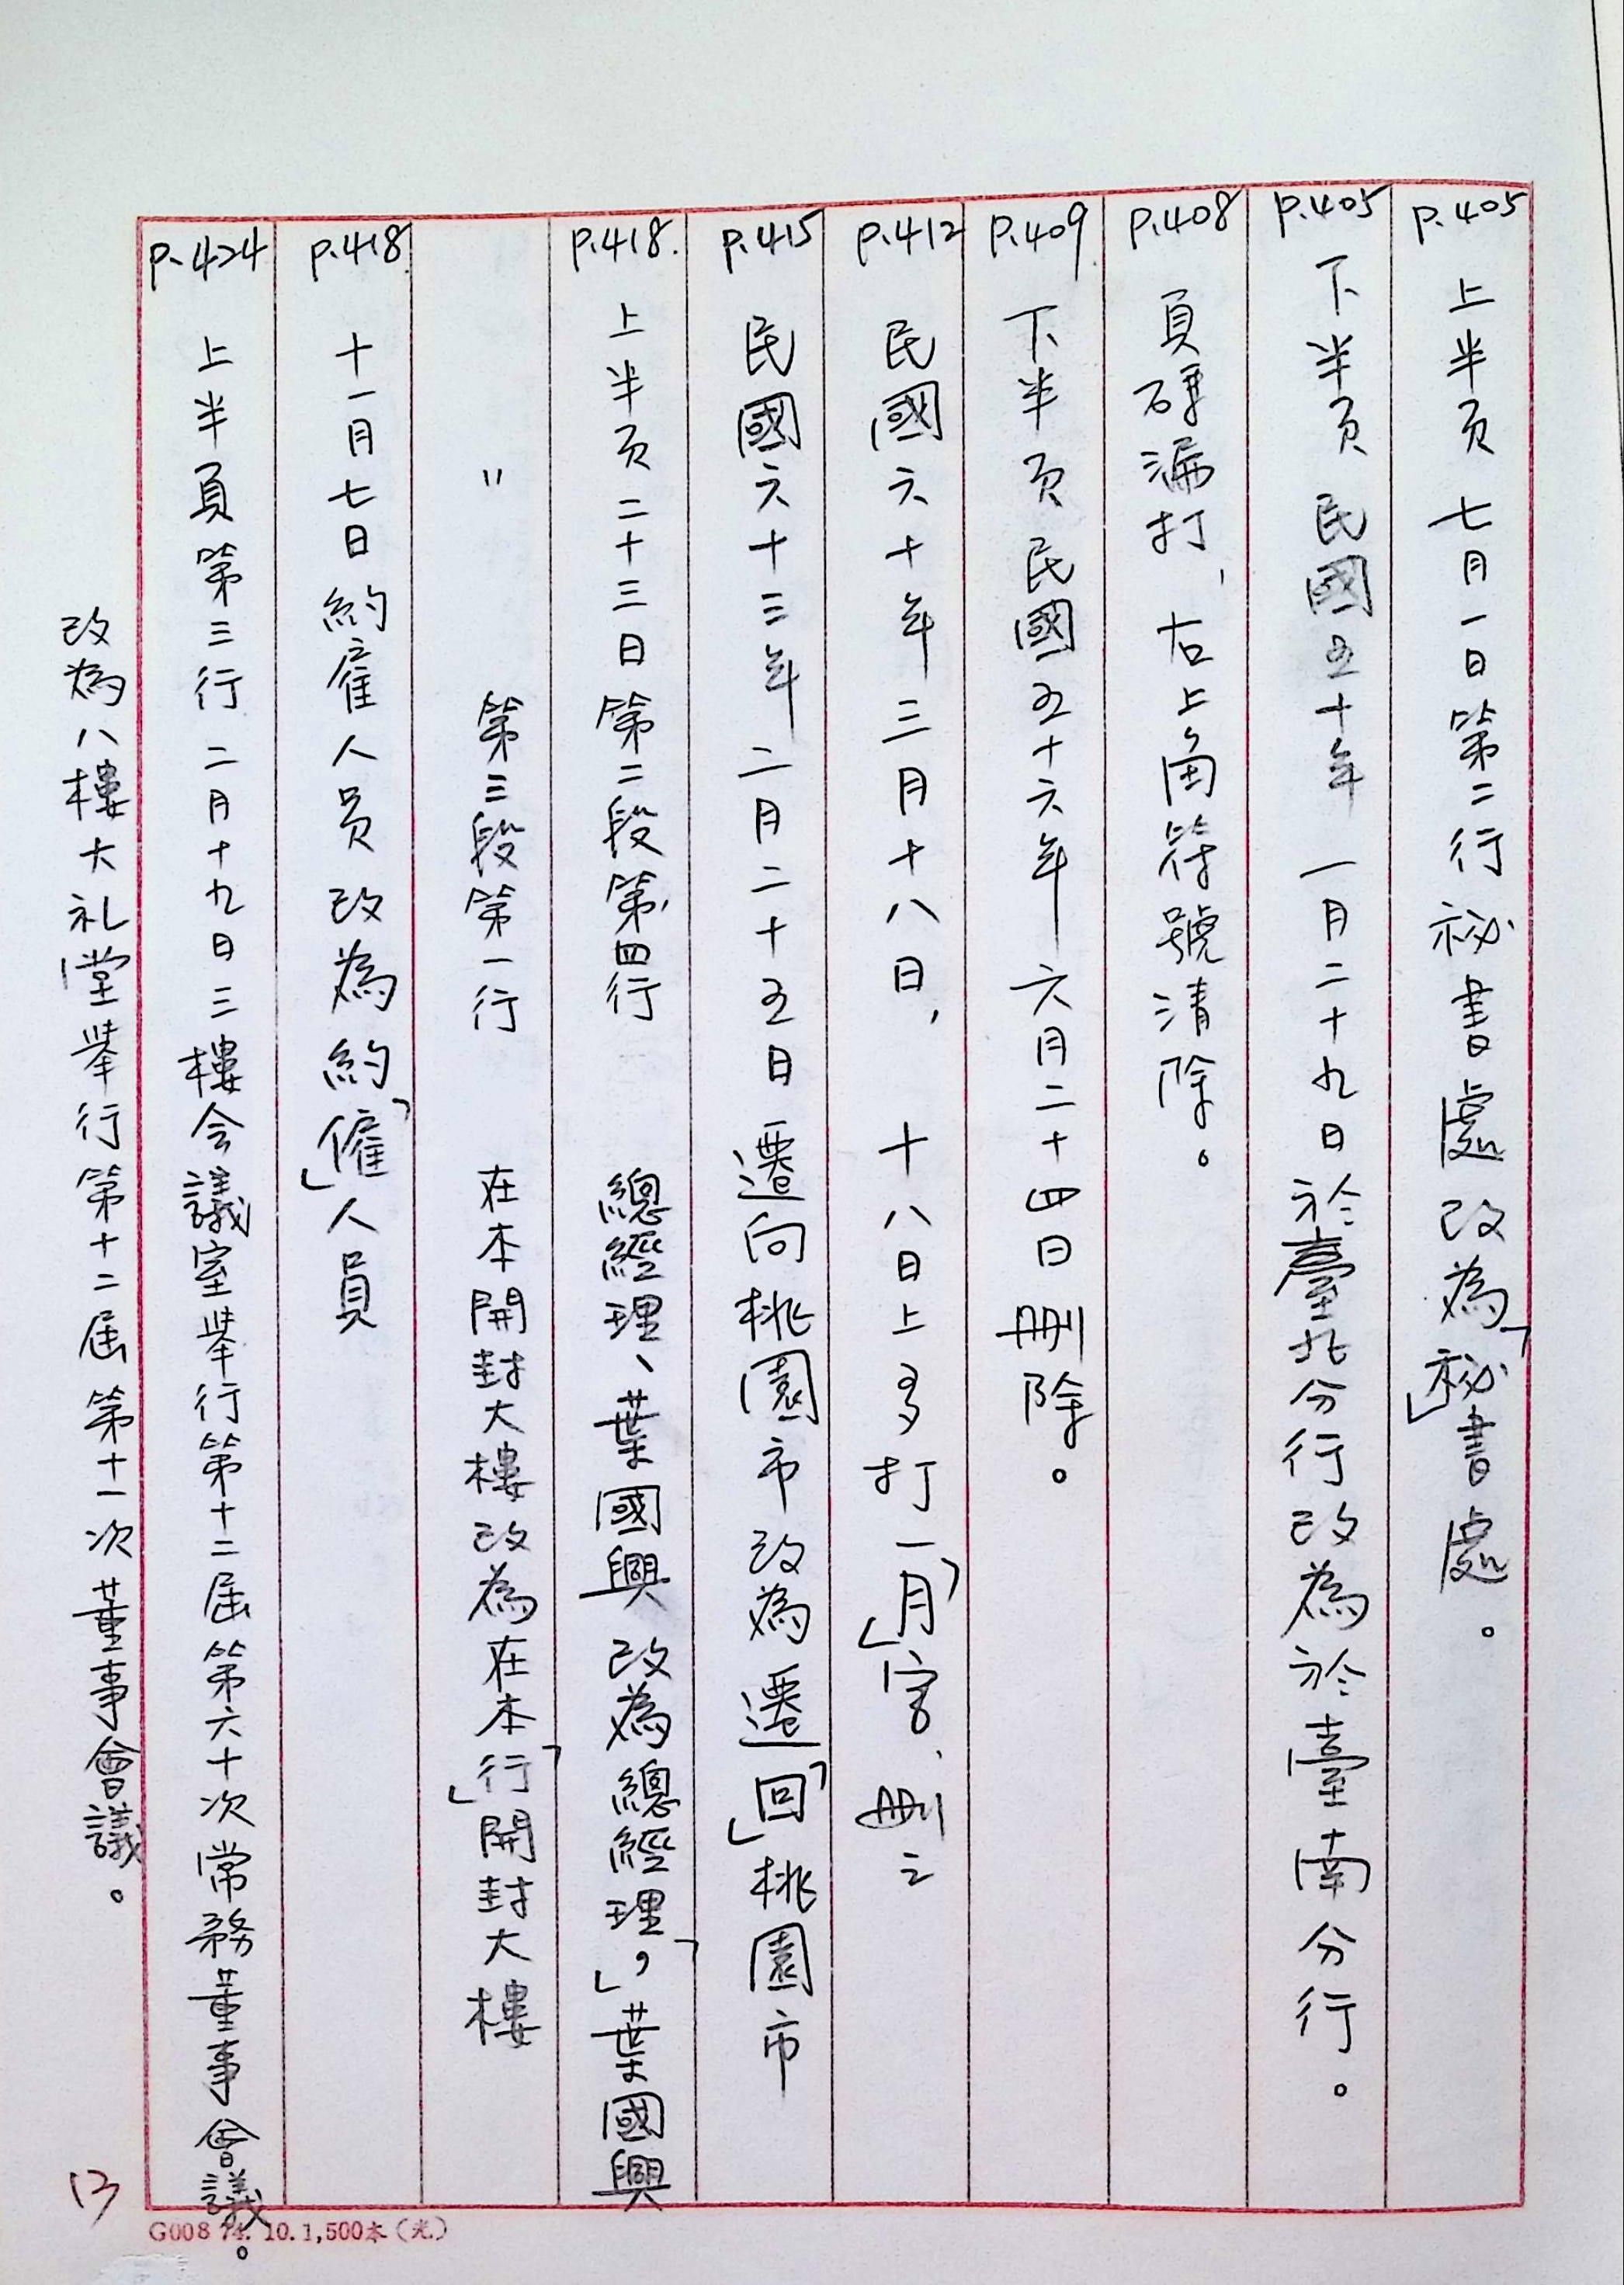 P.405 上半页 七月一日第二行祕書處改為「祕」書處。
P.405 下半页 民國五十年 一月二十九日於臺北分行改為於臺南分行。
P.408 頁碼漏打，右上角符號清除。
P.409 下半页 民國五十六年 六月二十四日刪除。
P.412 民國六十年三月十八日， 十八日上多打一「月」字、刪之
P.415 民國六十三年 二月二十五日遷向桃園市改為遷「回」桃園市
P.418. 上半页二十三日第二段第四行 總經理、葉國興 改為總經理「，」葉國興
〃 第三段第一行 在本開封大樓改為在本「行」開封大樓
P.418. 十一月七日約雇人员 改為約「僱」人員
P.424 上半頁第三行 二月十九日三樓会議室举行第十二屆第六十次常務董事會議。
改為八樓大礼堂举行第十二屆第十一次董事會議。
13
G008 74. 10. 1,500本（光）